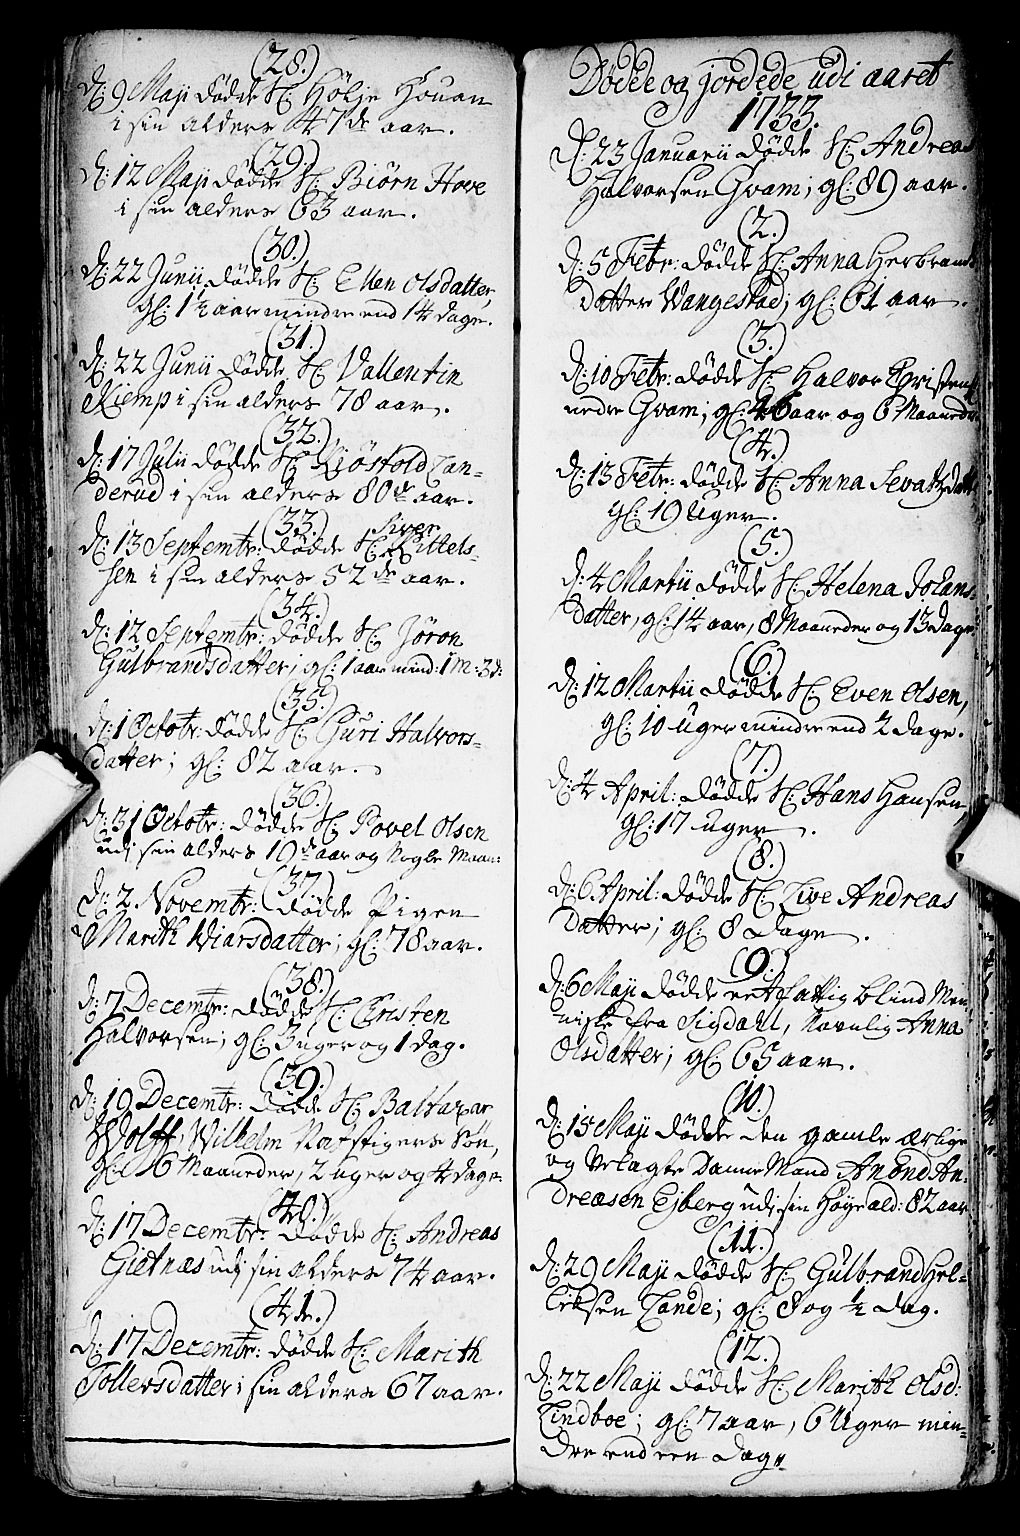 (28.)
D: 9 Maji dødde Sl: Hølje Houan
i sin alders 47de aar.
(29.)
D: 12 Maji dødde Sl: Biørn Hove
i sin alders 63 aar.
(30.)
D: 22 Junii dødde Sl: Ellen Olsdatter,
gl: 1½ aar mindre end 14 dage.
(31.)
D: 22 Junii dødde Sl: Vallentin
Kiemp i sin alders 78 aar.
(32.)
D: 17 Julii dødde Sl: Kiøstold Lan-
derud i sin alders 80de aar.
(33.)
D: 13 Septembr: dødde Sl: Siver Kittels-
sen i sin alders 52de aar.
(34.)
D: 12 Septembr: dødde Sl: Jøron
Gulbrandsdatter; gl: 1 aar mind: 1 M: 3 d:
(35.)
D: 1 Octobr: dødde Sl: Guri Halvors-
datter; gl: 82 aar.
(36.)
D: 31 Octobr: dødde Sl: Povel Olsen
udi sin alders 19de aar og Nogle Maan:
(37.)
D: 2 Novembr: dødde Pigen
Marith Kiarsdatter; gl: 78 aar.
(38.)
D: 7 Decembr: dødde Sl: Christen
Halvorsen; gl: 3 uger og 1 dag.
(39.)
D: 10 Decembr: dødde Sl: Baltazar
Wolff, Wilhelm Ratstigers Søn,
gl: 16 Maaneder, 2 uger og 4 dage.
(40.)
D: 17 Decembr: dødde Sl: Andreas
Gietnæs udi sin alders 74 aar.
(41.)
D: 17 Decembr: dødde Sl: Marith
Tollersdatter i sin alders 67 aar.
Dødde og jordede udi aaret
1733.
D: 23 Januarii dødde Sl: Andreas
Halvorsen Gvam; gl: 89 aar.
(2.)
D: 5 Febr: dødde Sl: Anna Herbrands
datter Vangestad; gl: 61 aar.
(3.)
D: 10 Febr: dødde Sl: Halvor Christens
nedre Gvam; gl: 46 aar og 6 Maaneder
(4.)
D: 13 Febr: dødde Sl: Anna Sevatzdatt
gl: 19 Uger.
(5.)
D: 4 Martii dødde Sl: Helena Johans
datter, gl: 14 aar, 8 Maaneder og 13 dage
(6.)
D: 12 Martii dødde Sl: Even Olsen,
gl: 10 uger mindre end 2 dage.
(7.)
D: 4 April: dødde Sl: Hans Hansen,
gl: 17 uger.
(8.)
D: 6 April: dødde Sl: Live Andreas
datter; gl: 8 dage.
(9.)
D: 6 Maji dødde eet fattig blind Men-
niske fra Sigdahl, Navnlig Anna
Olsdatter; gl: 65 aar.
(10.)
D: 15 Maji dødde den gamle ærlige
og velagte Danne Mand Amond An-
dreæsen Ejberg udi sin høye ald: 82 aar
(11.)
D: 29 Maji dødde Sl: Gulbrand Hel-
liksen Lande; gl: 8 og ½ dag.
(12.)
D: 22 Maji dødde Sl: Marith Olsd:
Lindboe; gl: 7 aar, 6 Uger min-
dre end een dag